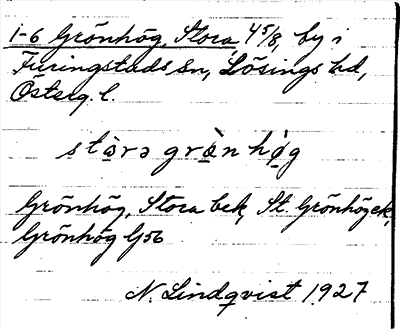 1-6 Grönhög, Stora, 4 5/8, by i
Furingstads sn, Lösings hd,
Österg. l.
stōrə grȯ̀n hǿg
Grönhög, Stora bek, St. Grönhög ek,
Grönhög Gsb
N. Lindqvist 1927